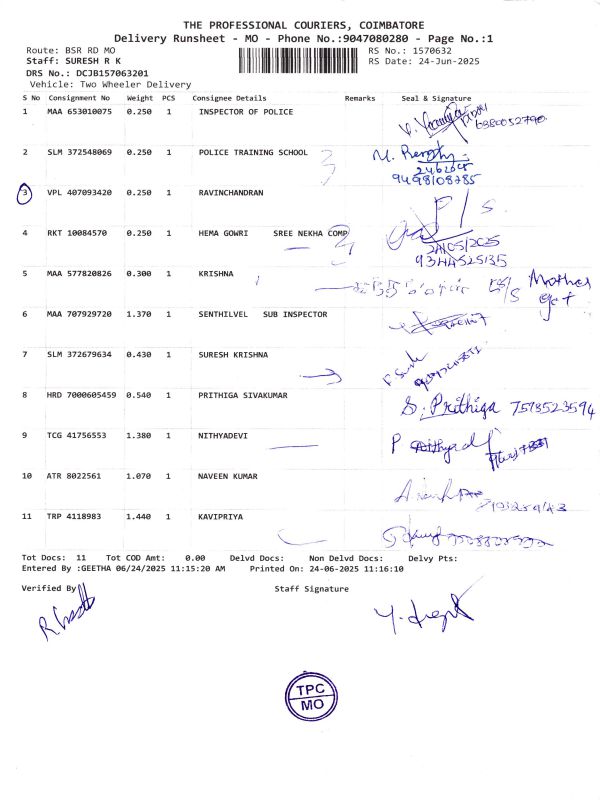 THE PROFESSIONAL COURIERS, COIMBATORE
Delivery Runsheet - MO - Phone No.:9047080280 - Page No.:1
Route: BSR RD MO RS No.: 1570632
Staff: SURESH R K RS Date: 24-Jun-2025
DRS No.: DCJB157063201
Vehicle: Two Wheeler Delivery
S No Consignment No Weight PCS Consignee Details Remarks Seal & Signature
1 MAA 653010075 0.250 1 INSPECTOR OF POLICE
2 SLM 372548069 0.250 1 POLICE TRAINING SCHOOL
9498108785
3 VPL 407093420 0.250 1 RAVINCHANDRAN P/s.
4 RKT 10084570 0.250 1 HEMA GOWRI SREE NEKHA COMP
5 MAA 577820826 0.300 1 KRISHNA Mother
get
6 MAA 707929720 1.370 1 SENTHILVEL SUB INSPECTOR
7 SLM 372679634 0.430 1 SURESH KRISHNA
8 HRD 7000605459 0.540 1 PRITHIGA SIVAKUMAR S. Prithiga 7578523594
9 TCG 41756553 1.380 1 NITHYADEVI
10 ATR 8022561 1.070 1 NAVEEN KUMAR
11 TRP 4118983 1.440 1 KAVIPRIYA
Tot Docs: 11 Tot COD Amt: 0.00 Delvd Docs: Non Delvd Docs: Delvy Pts:
Entered By :GEETHA 06/24/2025 11:15:20 AM Printed On: 24-06-2025 11:16:10
Verified By Staff Signature
TPC
MO